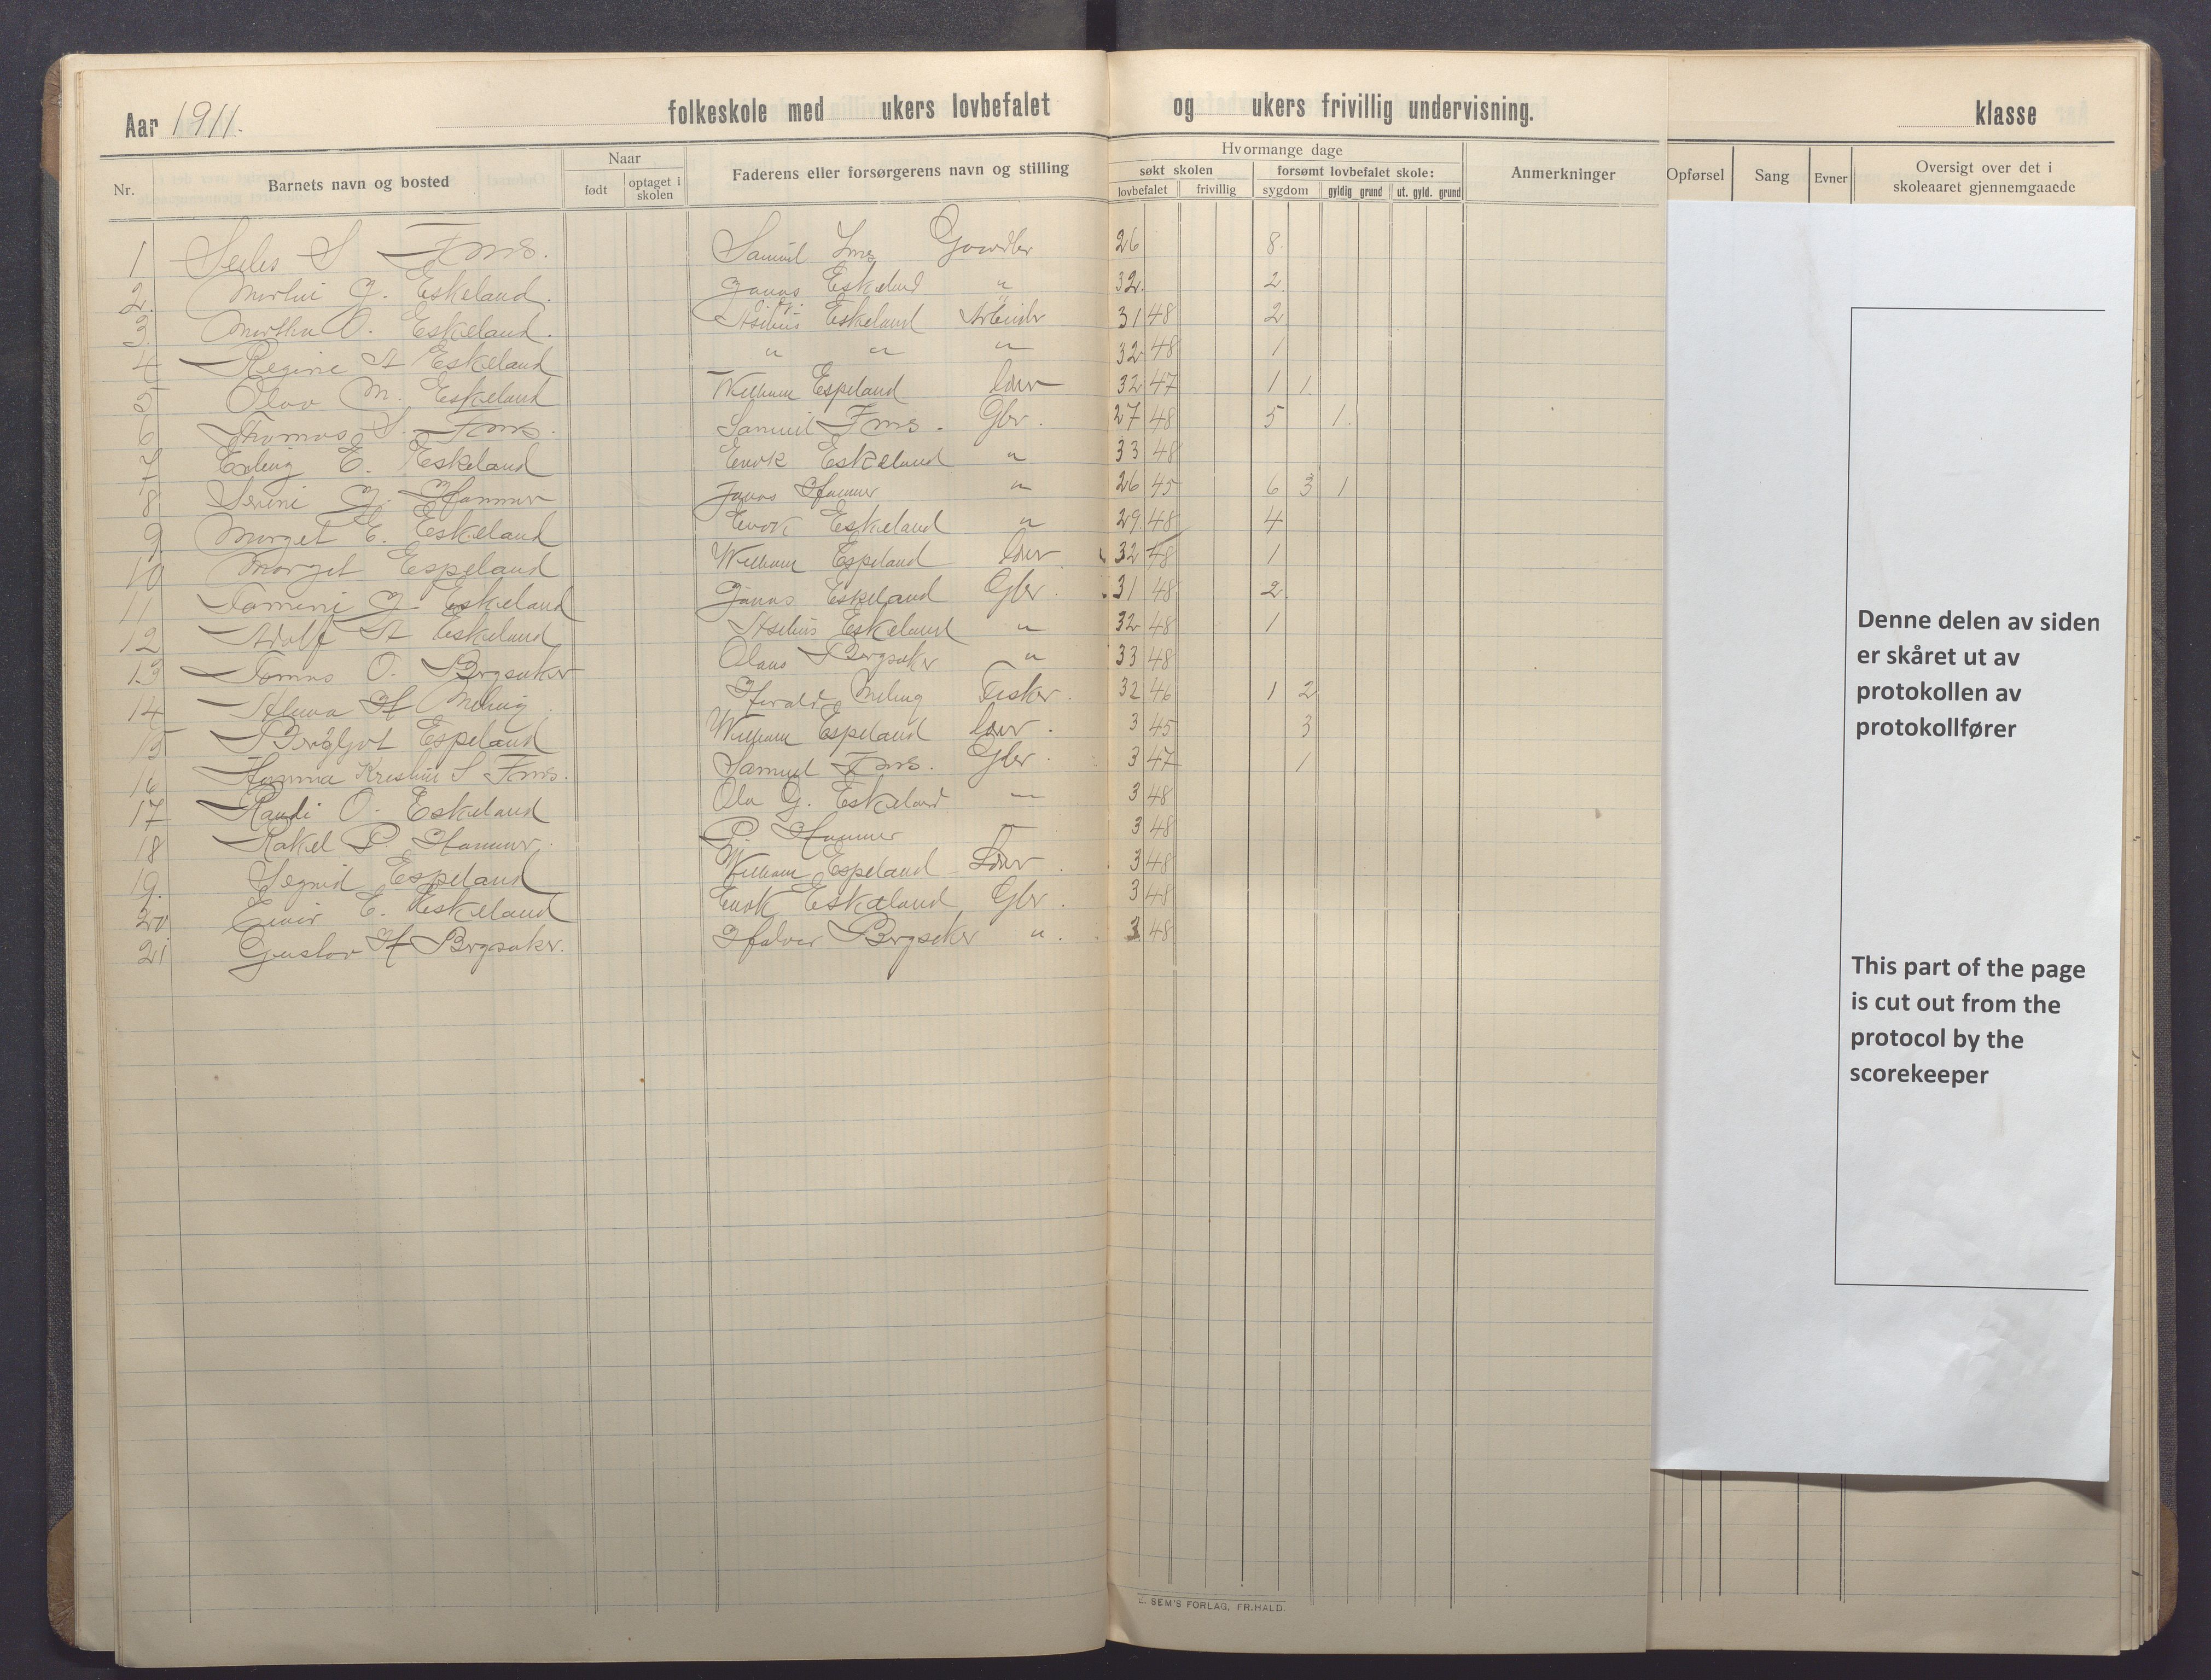 Aar 1911. folkeskole med ukers lovbefalet og ukers frivillig undervisning. klasse
Nr. Barnets navn og bosted Naar født optaget i skolen Faderens eller forsørgerens navn og stilling Hvormange dage søkt skolen lovbefalet frivillig forsømt lovbefalet skole: sygdom gyldig grund ut. gyld. grund Anmerkninger Opførsel Sang Evner Oversigt over det i skoleaaret gjennemgaaede
1 S 26 8
2. J. Eskeland. Jonas Eskeland " 32. 2
3. Martha O. Eskeland. Eskeland 31 48 2
4 Regine A Eskeland " " " 32 48 1
5 Olav M. Eskeland William Espeland 32 47 1 1
6 Thomas S. Samuel Gbr. 27 48 5 1.
7 Erling E. Eskeland Enok Eskeland " 33 48
8 Serine J. Hammer Jonas Hammer " 26 45 6 3 1
9 Marget E. Eskeland Enok Eskeland " 29 48 4
10 Marget Espeland William Espeland 32 48 1
11 Tomine J. Eskeland Jonas Eskeland Gbr. 31 48 2
12 Adolf A Eskeland Eskeland " 32 48 1
13 Tomas O. Bergsaker Olaus Bergsaker " 33 48
14 H Meling Harald Meling Fisker. 32 46 1 2
15 Bergljot Espeland William Espeland 3 45 3
16 S Samuel Gbr. 3 47 1
17 Randi O. Eskeland Ola G. Eskeland 3 48
18 Rakel P Hammer. P. Hammer 3 48
19. Signid Espeland William Espeland 3 48
20 Einir E. Eskeland Enok Eskeland Gbr. 3 48
21 Gustav H Bergsaker. Halvor Bergsaker ". 3 48
Denne delen av siden
er skåret ut av
protokollen av
protokollfører
This part of the page
is cut out from the
protocol by the
scorekeeper
SEM'S FORLAG, FR.HALD.